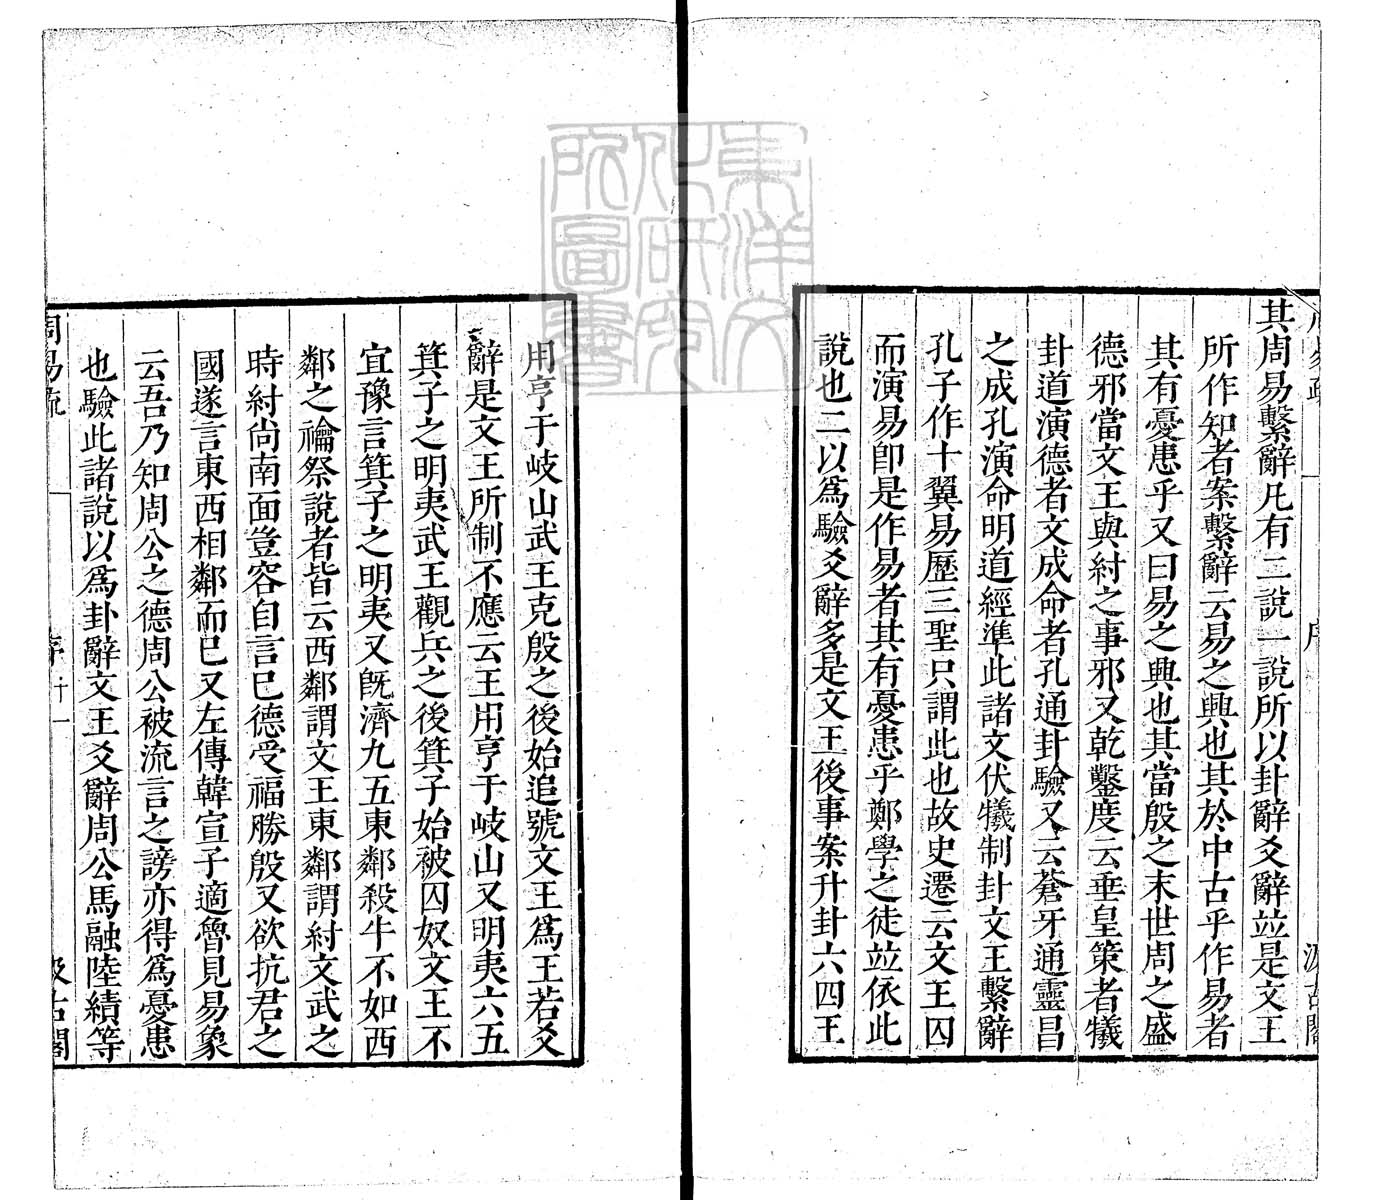 其周易繫辭凡有二說一說所以卦辭爻辭竝是文王
所作知者案繫辭云易之興也其於中古乎作易者
其有憂患乎又曰易之興也其當殷之末世周之盛
德邪當文王與紂之事邪又乾鑿度云垂皇策者犧
卦道演德者文成命者孔通卦驗又云蒼牙通靈昌
之成孔演命明道經準此諸文伏犧制卦文王繫辭
孔子作十翼易歷三聖只謂此也故史遷云文王囚
而演易卽是作易者其有憂患乎鄭學之徒竝依此
說也二以爲驗爻辭多是文王後事案升卦六四王
用亨于岐山武王克殷之後始追號文王爲王若爻
辭是文王所制不應云王用亨于岐山又明夷六五
箕子之明夷武王觀兵之後箕子始被囚奴文王不
宜豫言箕子之明夷又旣濟九五東鄰殺牛不如西
鄰之禴祭說者皆云西鄰謂文王東鄰謂紂文武之
時紂尚南面豈容自言己德受福勝殷又欲抗君之
國遂言東西相鄰而已又左傳韓宣子適魯見易象
云吾乃知周公之德周公被流言之謗亦得爲憂患
也驗此諸說以爲卦辭文王爻辭周公馬融陸績等
周易疏 序 十一 汲古閣
東洋文化研究所圖書